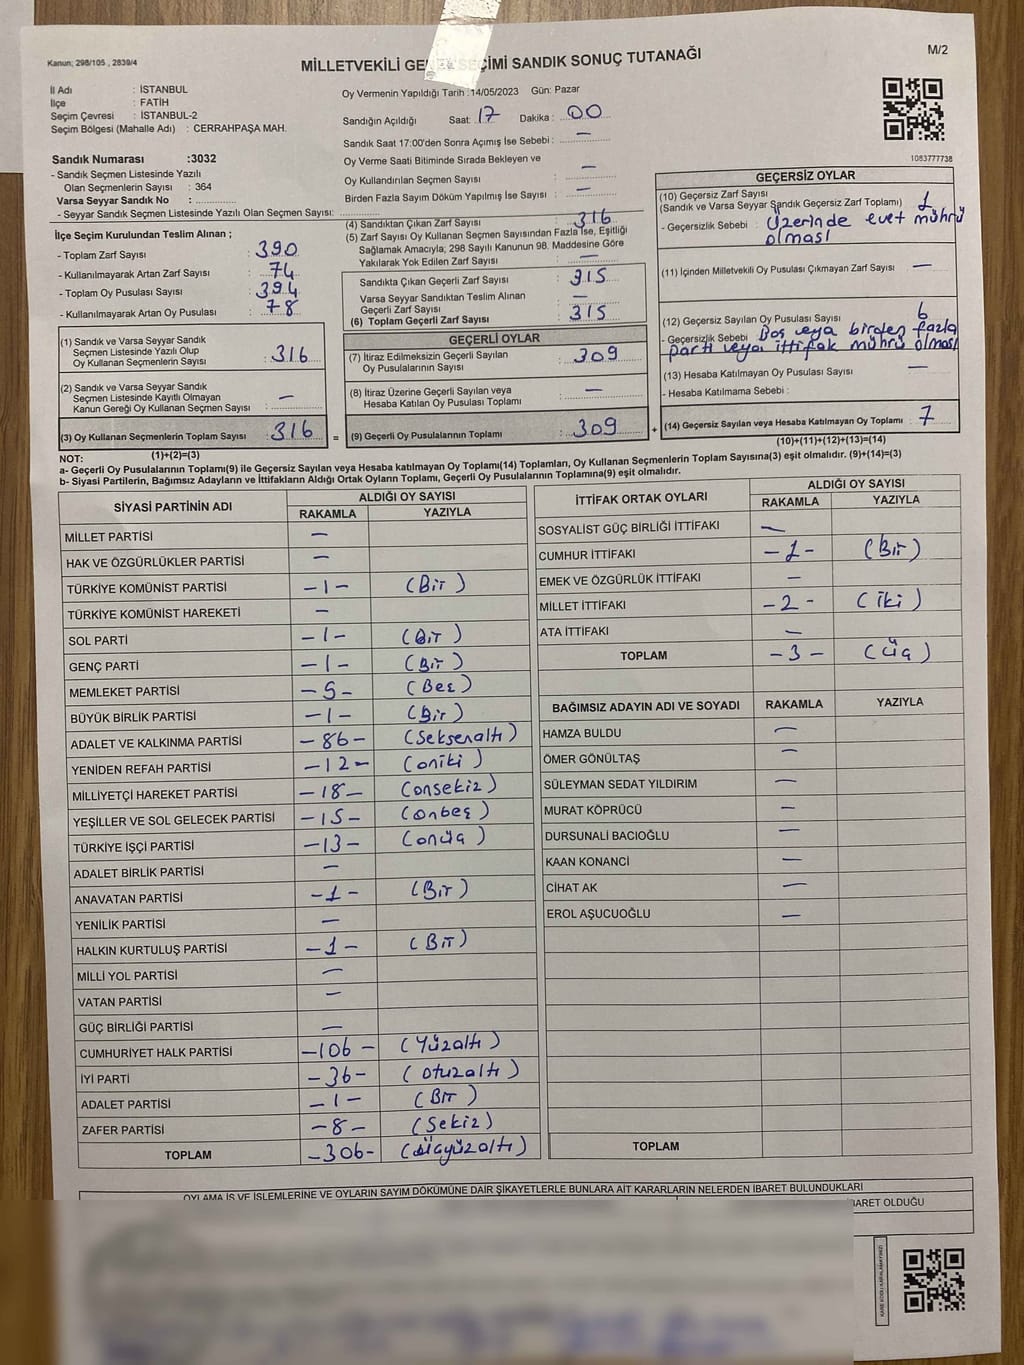 Kanun; 298/105 , 2839/4
M/2
MİLLETVEKİLİ GE SEÇİMİ SANDIK SONUÇ TUTANAĞI
İl Adı : İSTANBUL
İlçe : FATİH
Seçim Çevresi : İSTANBUL-2
Seçim Bölgesi (Mahalle Adı) : CERRAHPAŞA MAH.
Sandık Numarası :3032
- Sandık Seçmen Listesinde Yazılı
Olan Seçmenlerin Sayısı : 364
Varsa Seyyar Sandık No :
- Seyyar Sandık Seçmen Listesinde Yazılı Olan Seçmen Sayısı:
İlçe Seçim Kurulundan Teslim Alınan ;
- Toplam Zarf Sayısı : 390
- Kullanılmayarak Artan Zarf Sayısı : 74
- Toplam Oy Pusulası Sayısı : 394
- Kullanılmayarak Artan Oy Pusulası : 78
(1) Sandık ve Varsa Seyyar Sandık
Seçmen Listesinde Yazılı Olup
Oy Kullanan Seçmenlerin Sayısı : 316
(2) Sandık ve Varsa Seyyar Sandık
Seçmen Listesinde Kayıtlı Olmayan
Kanun Gereği Oy Kullanan Seçmen Sayısı : -
(3) Oy Kullanan Seçmenlerin Toplam Sayısı : 316 =
(1)+(2)=(3)
Oy Vermenin Yapıldığı Tarih :14/05/2023 Gün: Pazar
Sandığın Açıldığı Saat: 17 Dakika : 00
Sandık Saat 17:00'den Sonra Açımış İse Sebebi : -
Oy Verme Saati Bitiminde Sırada Bekleyen ve
Oy Kullandırılan Seçmen Sayısı : -
Birden Fazla Sayım Döküm Yapılmış İse Sayısı : -
(4) Sandıktan Çıkan Zarf Sayısı : 316
(5) Zarf Sayısı Oy Kullanan Seçmen Sayısından Fazla İse, Eşitliği
Sağlamak Amacıyla; 298 Sayılı Kanunun 98. Maddesine Göre
Yakılarak Yok Edilen Zarf Sayısı : -
Sandıkta Çıkan Geçerli Zarf Sayısı : 315
Varsa Seyyar Sandıktan Teslim Alınan
Geçerli Zarf Sayısı : -
(6) Toplam Geçerli Zarf Sayısı : 315
GEÇERLİ OYLAR
(7) İtiraz Edilmeksizin Geçerli Sayılan
Oy Pusulalarının Sayısı : 309
(8) İtiraz Üzerine Geçerli Sayılan veya
Hesaba Katılan Oy Pusulası Toplamı : -
(9) Geçerli Oy Pusulalarının Toplamı : 309 +
1083777738
GEÇERSİZ OYLAR
(10) Geçersiz Zarf Sayısı
(Sandık ve Varsa Seyyar Sandık Geçersiz Zarf Toplamı) : 1
- Geçersizlik Sebebi : Üzerinde evet mührü
olması
(11) İçinden Milletvekili Oy Pusulası Çıkmayan Zarf Sayısı : -
(12) Geçersiz Sayılan Oy Pusulası Sayısı : 6
- Geçersizlik Sebebi : Boş veya birden fazla
parti veya ittifak mührü olması
(13) Hesaba Katılmayan Oy Pusulası Sayısı : -
- Hesaba Katılmama Sebebi :
(14) Geçersiz Sayılan veya Hesaba Katılmayan Oy Toplamı : 7
(10)+(11)+(12)+(13)=(14)
NOT:
a- Geçerli Oy Pusulalarının Toplamı(9) ile Geçersiz Sayılan veya Hesaba katılmayan Oy Toplamı(14) Toplamları, Oy Kullanan Seçmenlerin Toplam Sayısına(3) eşit olmalıdır. (9)+(14)=(3)
b- Siyasi Partilerin, Bağımsız Adayların ve İttifakların Aldığı Ortak Oyların Toplamı, Geçerli Oy Pusulalarının Toplamına(9) eşit olmalıdır.
SİYASİ PARTİNİN ADI ALDIĞI OY SAYISI
RAKAMLA YAZIYLA
MİLLET PARTİSİ -
HAK VE ÖZGÜRLÜKLER PARTİSİ -
TÜRKİYE KOMÜNİST PARTİSİ -1- (Bir)
TÜRKİYE KOMÜNİST HAREKETİ -
SOL PARTİ -1- (Bir)
GENÇ PARTİ -1- (Bir)
MEMLEKET PARTİSİ -5- (Beş)
BÜYÜK BİRLİK PARTİSİ -1- (Bir)
ADALET VE KALKINMA PARTİSİ -86- (Seksenaltı)
YENİDEN REFAH PARTİSİ -12- (oniki)
MİLLİYETÇİ HAREKET PARTİSİ -18- (onsekiz)
YEŞİLLER VE SOL GELECEK PARTİSİ -15- (onbeş)
TÜRKİYE İŞÇİ PARTİSİ -13- (onüç)
ADALET BİRLİK PARTİSİ -
ANAVATAN PARTİSİ -1- (Bir)
YENİLİK PARTİSİ -
HALKIN KURTULUŞ PARTİSİ -1- (Bir)
MİLLİ YOL PARTİSİ -
VATAN PARTİSİ -
GÜÇ BİRLİĞİ PARTİSİ -
CUMHURİYET HALK PARTİSİ -106- (Yüzaltı)
İYİ PARTİ -36- (otuzaltı)
ADALET PARTİSİ -1- (Bir)
ZAFER PARTİSİ -8- (Sekiz)
TOPLAM -306- (üçyüzaltı)
İTTİFAK ORTAK OYLARI ALDIĞI OY SAYISI
RAKAMLA YAZIYLA
SOSYALİST GÜÇ BİRLİĞİ İTTİFAKI -
CUMHUR İTTİFAKI -1- (Bir)
EMEK VE ÖZGÜRLÜK İTTİFAKI -
MİLLET İTTİFAKI -2- (iki)
ATA İTTİFAKI -
TOPLAM -3- (üç)
BAĞIMSIZ ADAYIN ADI VE SOYADI RAKAMLA YAZIYLA
HAMZA BULDU -
ÖMER GÖNÜLTAŞ -
SÜLEYMAN SEDAT YILDIRIM -
MURAT KÖPRÜCÜ -
DURSUNALİ BACIOĞLU -
KAAN KONANCİ -
CİHAT AK -
EROL AŞUCUOĞLU -
TOPLAM
OYLAMA İŞ VE İŞLEMLERİNE VE OYLARIN SAYIM DÖKÜMÜNE DAİR ŞİKAYETLERLE BUNLARA AİT KARARLARIN NELERDEN İBARET BULUNDUKLARI
İBARET OLDUĞU